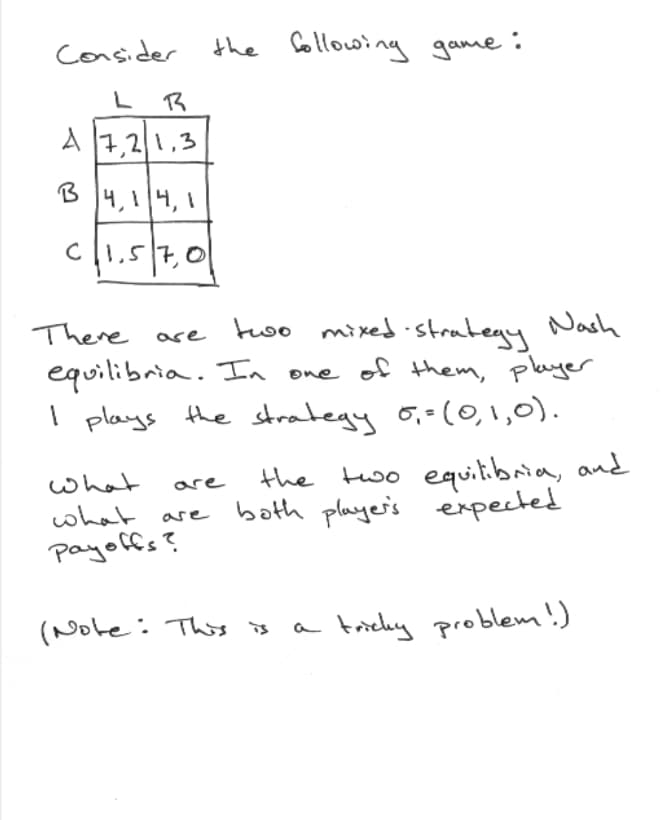 Consider the following game:
L R
A 7,2 1,3
B 4,1 4,1
C 1,5 7,0
There are two mixed-strategy Nash
equilibria. In one of them, player
1 plays the strategy σ₁=(0,1,0).
What are the two equilibria, and
what are both player's expected
payoffs?
(Note: This is a tricky problem!)